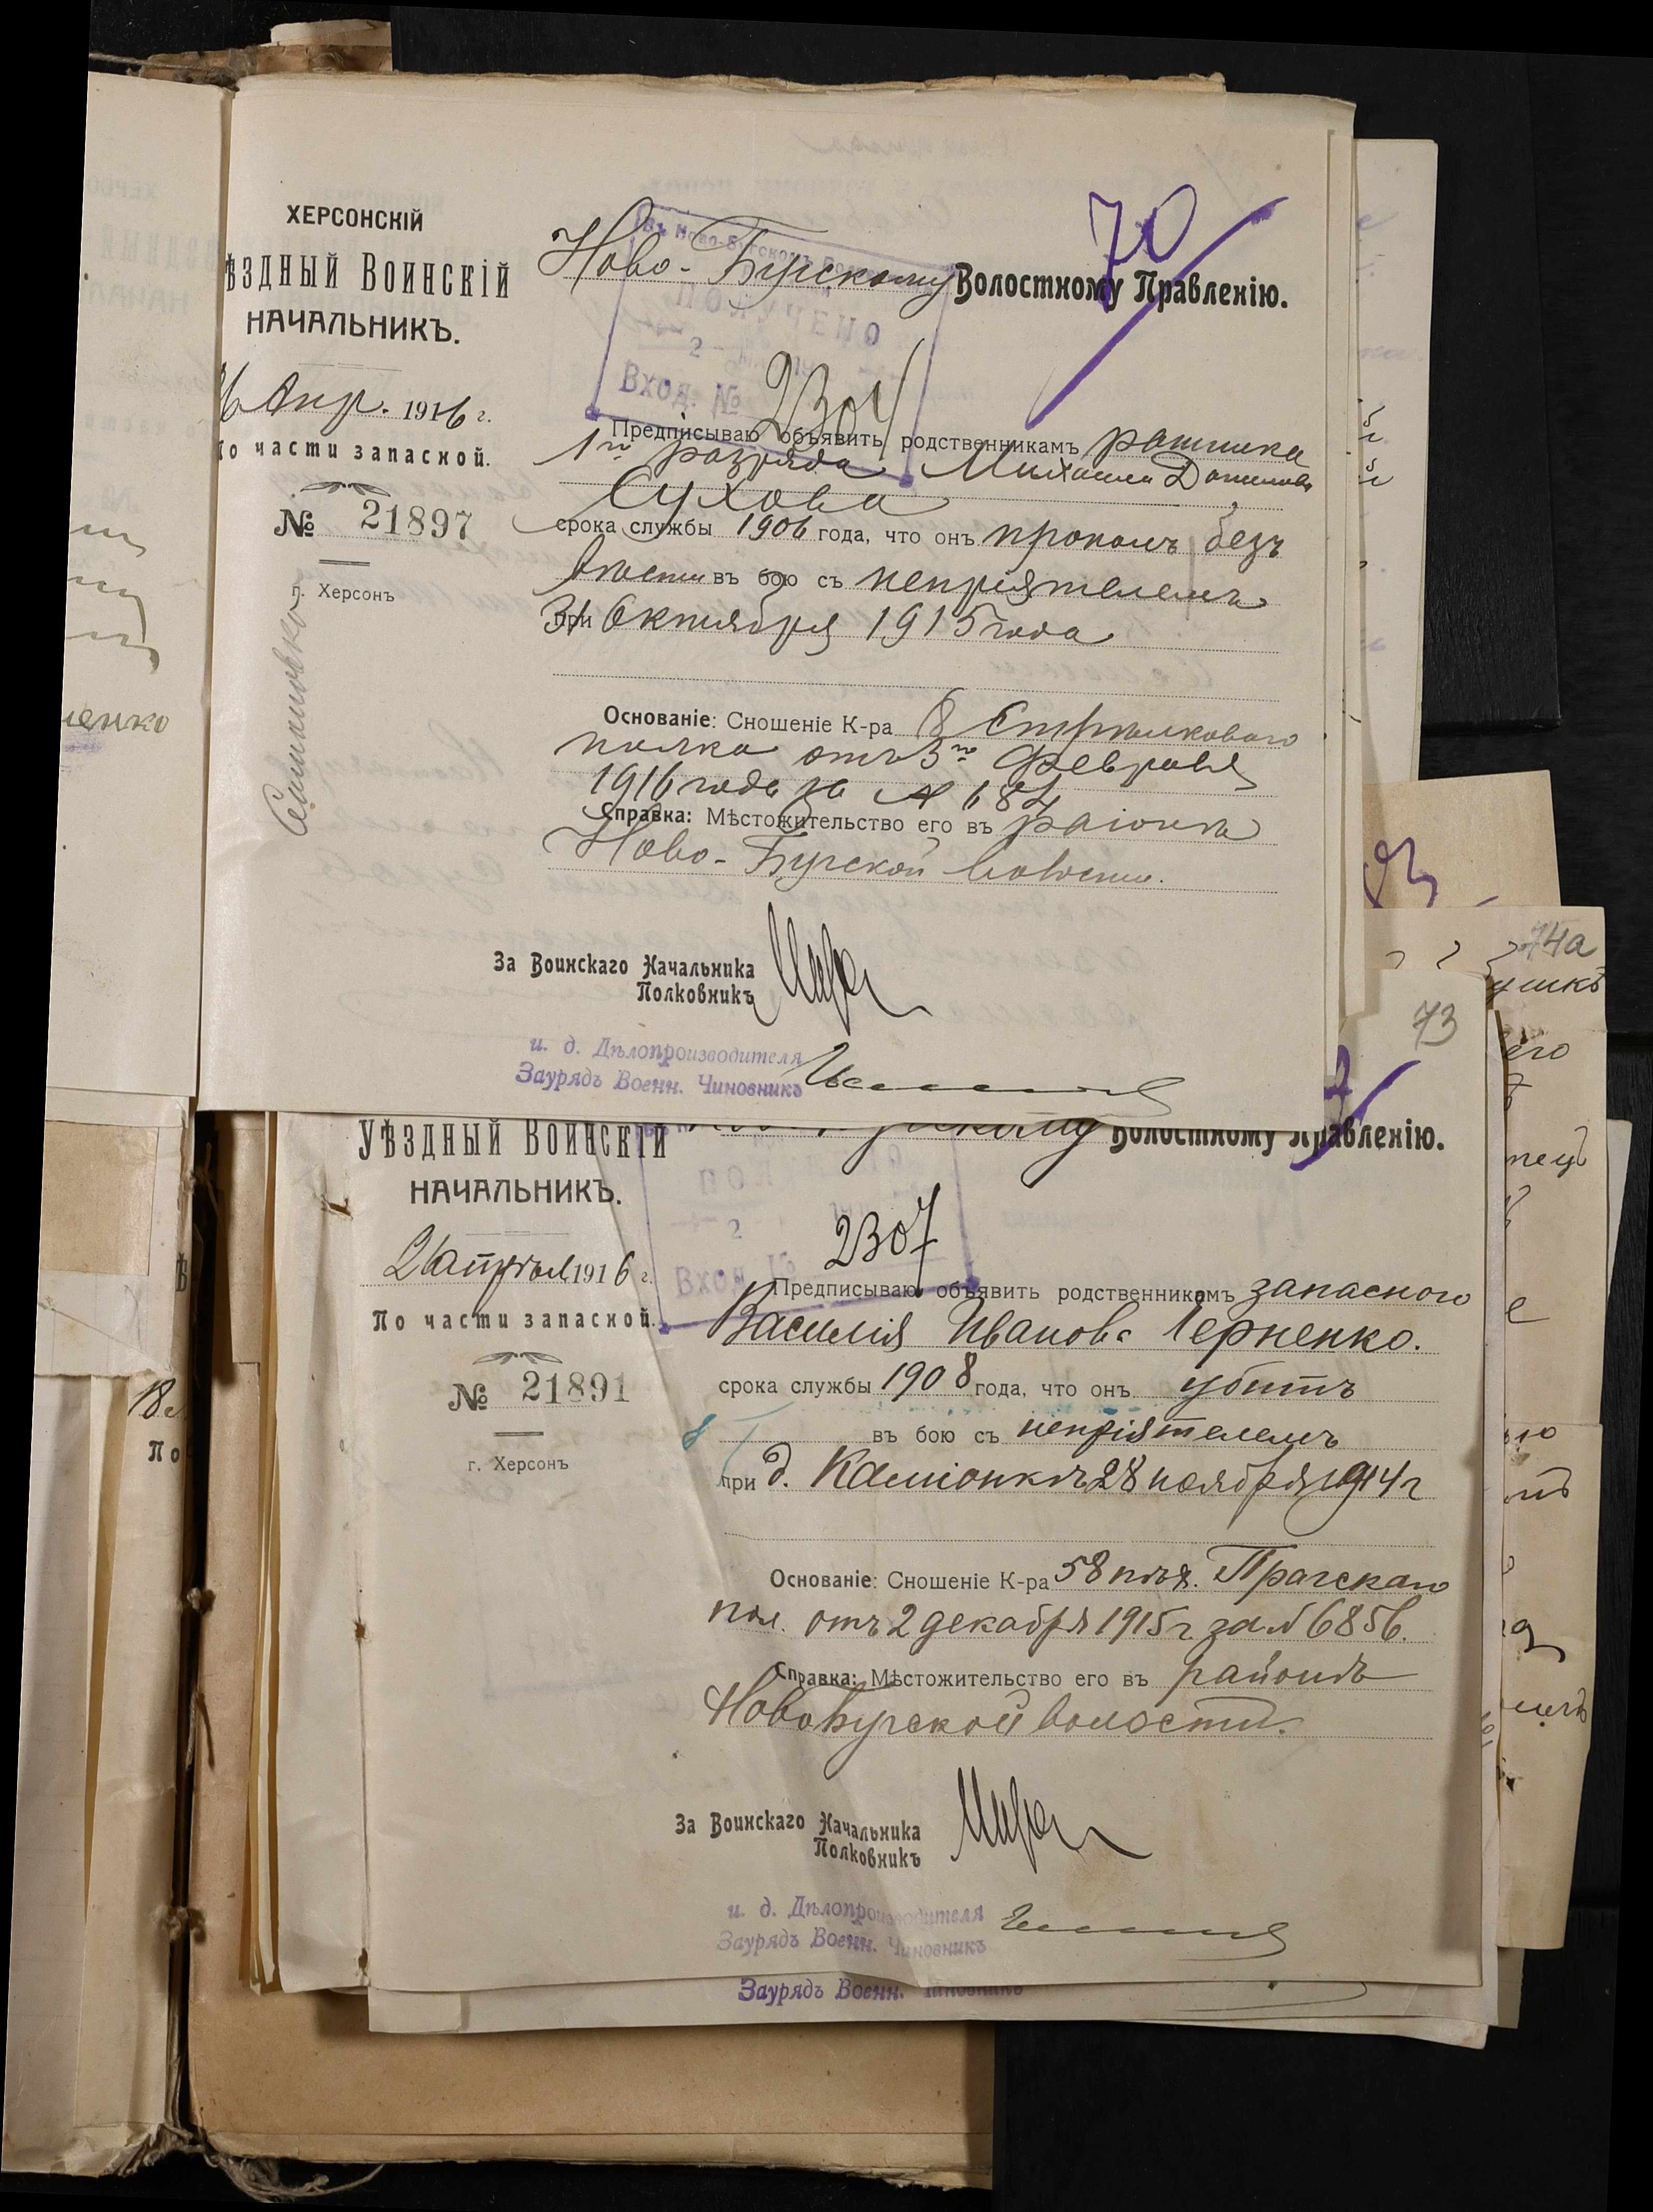 ХЕРСОНСКІЙ
ѢЗДНЫЙ ВОИНСКІЙ
НАЧАЛЬНИКЪ.
Апр. 1916 г.
По части запасной.
№ 21897
г. Херсонъ
Семеновка
Ново-Бугскому Волостному Правленію.
70
ПОЛУЧЕНО
Вход. № 2304
Предписываю объявить родственникамъ ратника
1го разряда Михаила Данилова
Сухова
срока службы 1906 года, что онъ пропалъ безъ
вѣсти въ бою съ непріятелемъ
31 Октября 1915 года
Основаніе: Сношеніе К-ра 8 Стрѣлковаго
полка отъ 3го Февраля
1916 года за №
Справка: Мѣстожительство его въ районѣ
Ново-Бугской волости.
За Воинскаго Начальника
Полковникъ
и. д. Дѣлопроизводителя
Заурядъ Военн. Чиновникъ
УѢЗДНЫЙ ВОИНСКІЙ
НАЧАЛЬНИКЪ.
26 апрѣля 1916 г.
По части запасной.
№ 21891
г. Херсонъ
Волостному Правленію.
73
Вход. №
2307
Предписываю объявить родственникамъ запасного
Василія Иванова Черненко.
срока службы 1908 года, что онъ убитъ
въ бою съ непріятелемъ
при д. Каміонкѣ 28 ноября 1914 г
Основаніе: Сношеніе К-ра 58 пѣх. Прагскаго
пол. отъ 2 декабря 1915 г. за № 6856.
Справка: Мѣстожительство его въ районѣ
Ново Бугской волости.
За Воинскаго Начальника
Полковникъ
и. д. Дѣлопроизводителя
Заурядъ Военн. Чиновникъ
Заурядъ Военн. Чиновникъ
74а
енко
По